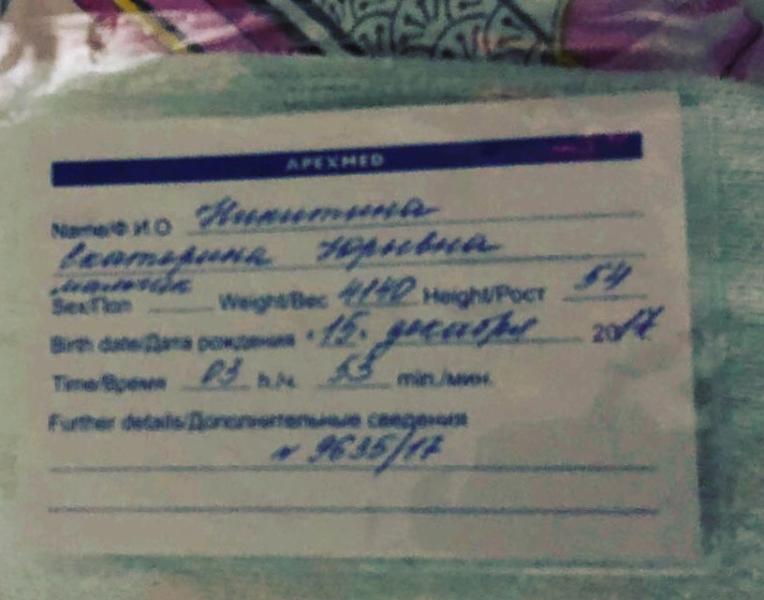 APEXMED
Name/Ф.И.О Никитина
Екатерина Юрьевна
мальчик
Sex/Пол Weight/Вес 4140 Height/Рост 54
Birth date/Дата рождения 15. декабря 2017
Time/Время 03 h./ч. 53 min./мин.
Further details/Дополнительные сведения
№ 9635/17